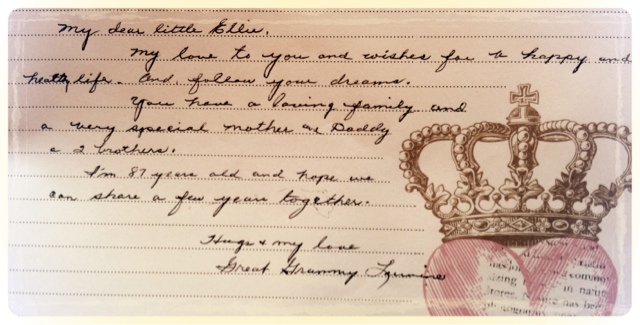 My dear little Ellie,
My love to you and wishes for a happy and
healthy life. And follow your dreams.
You have a loving family and
a very special mother & Daddy
& 2 brothers.
I'm 87 years old and hope we
can share a few years together.
Hugs & my love
Great Grammy